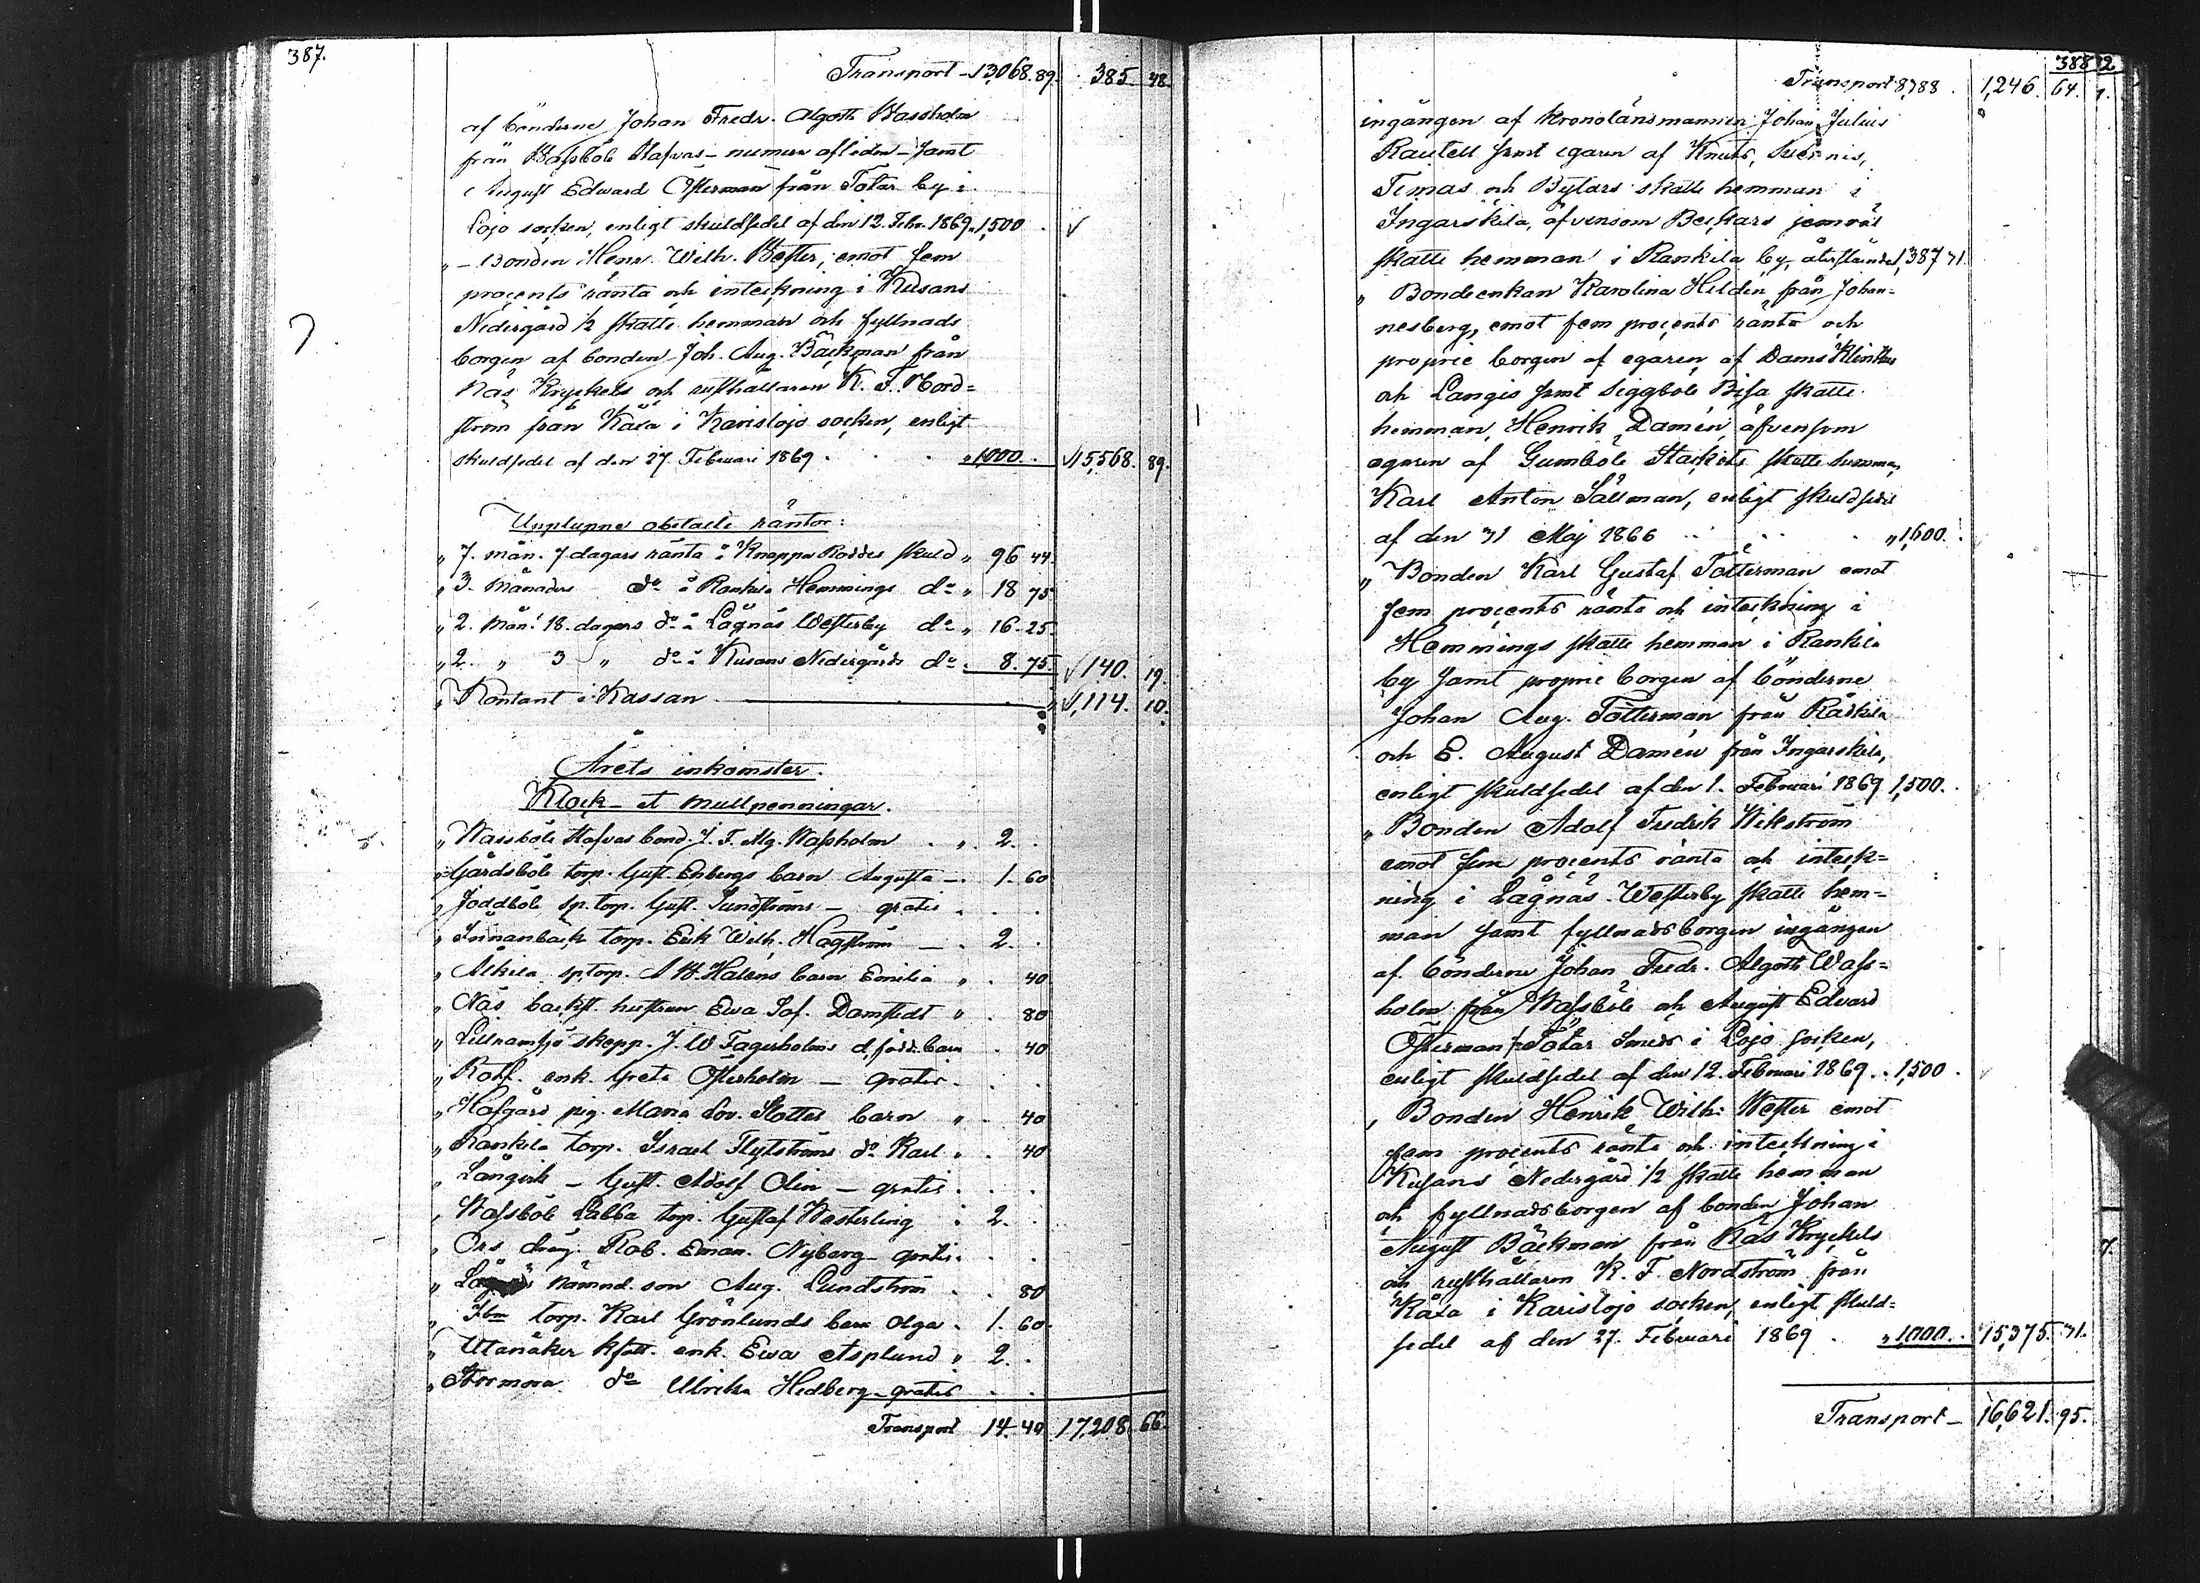 387.
Transport - 13,068. 89. 385. 48.
af bönderne Johan Fredr. Algoth Wassholm
från Wassböle Stafvas - numera afliden - jemt
August Edward Österman från Totar by i
Lojo socken, enligt skuldsedel af den 12. Febr. 1869 " 1,500 .
" - Bonden Henr. Wilh. Wester, emot fem
procents ränta och inteckning i Kusans
Nedergård 1/2 skatte hemman och fyllnads
borgen af bonden Joh. Aug. Bäckman från
Näs Kryckels och rusthållaren K. F. Nord=
ström från Kärla i Karislojo socken, enligt
skuldsedel af den 27. Februari 1869 . . . " 1,000. . 15,568. 89.
Upplupne obetalte räntor:
" 7. mån. 7 dagars ränta å Knapps Roddes skuld " 96 44
" 3. Månaders do å Rankila Hemmings do " 18 75
" 2. Mån. 18. dagars do å Lågnäs Westerby do " 16. 25.
" 2. " 3 " do å Kusans Nedergårds do . 8. 75. 140. 19.
" Kontant i Kassan " 1,114. 10.
Årets inkomster.
Klock- et mullpenningar.
" Wassböle Stafvas bond. J. F. Alg. Wassholm . " 2. .
" Gårdsböle torp. Gust. Enbergs barn Augusta - . 1. 60
" Joddböle sp. torp. Gust. Sundströms - gratis . . .
" Innanbäck torp. Erik Wilh. Hagström - . 2. .
" Älkila sp. torp. A W. Haléns barn Emilia " . 40
" Näs backst. hustrun Ewa Sof. Damstedt " . 80
" Lillramsjö skepp. J. W Fagerholms d. född. barn . 40
" Rotf. enk. Greta Österholm - gratis . . .
" Hafgård pig. Maria Lov. Slottes barn " . 40
" Rankila torp. Israel Flytströms do Karl " . 40
" Långvik - Gust. Adolf Olin - gratis . . .
" Wassböle Labba torp. Gustaf Westerling . 2. .
" Ors dräng. Rob. Eman. Nyberg - gratis . . .
" nämnd. son Aug. Lundström . . 80
" Ibm torp. Karl Grönlunds barn Olga . 1. 60.
" Utanåker kfatt. enk. Ewa Asplund " 2. .
" Stormora do Ulrika Hedberg - gratis . .
Transport 14. 40 17,208. 66.
388 2
Transport 8,788 . 1,246. 64. 7.
ingången af kronolänsmannen Johan Julius
Rautell jemt egaren af Knuts, Svernis,
Timas och Bytars skatte hemman i
Ingarskila, äfvensom Beckars jemväl
skatte hemman i Rankila by, återstående 1,387 71.
" Bondeenkan Karolina Hildén från Johan=
nesberg, emot fem procents ränta och
proprie borgen af egaren af Dams Klinkas
och Langis jemt Siggböle Bisa skatte
hemman, Henrik Damén, äfvensom
egaren af Gumböle Stackots skatte hemman,
Karl Anton Sällman, enligt skuldsedel
af den 31 Maj 1866 . . . " 1,600. .
" Bonden Karl Gustaf Tötterman emot
fem procents ränta och inteckning i
Hemmings skatte hemman i Rankila
by jemt proprie borgen af bönderne
Johan Aug. Tötterman från Räckila
och E. August Damén från Ingarskila,
enligt skuldsedel af den 1. Februari 1869 1,500. .
" Bonden Adolf Fredrik Wikström
emot fem procents ränta och inteck=
ning i Lågnäs Westerby skatte hem=
man jemt fyllnadsborgen ingången
af bönderne Johan Fredr. Algoth Wass=
holm från Wassböle och August Edvard
Österman f. Totar Smeds i Lojo socken,
enligt skuldsedel af den 12. Februari 1869 . . 1,500 .
" Bonden Henrik Wilh: Wester emot
fem procents ränta och inteckning i
Kusans Nedergård 1/2 skatte hemman
och fyllnadsborgen af bonden Johan
August Bäckman från Näs Kryckels
och rusthållaren K. F. Nordström från
Kärla i Karislojo socken, enligt skuld=
sedel af den 27. Februari 1869 . " 1,000. . 15,375. 31.
7.
Transport - 16,621. 95.